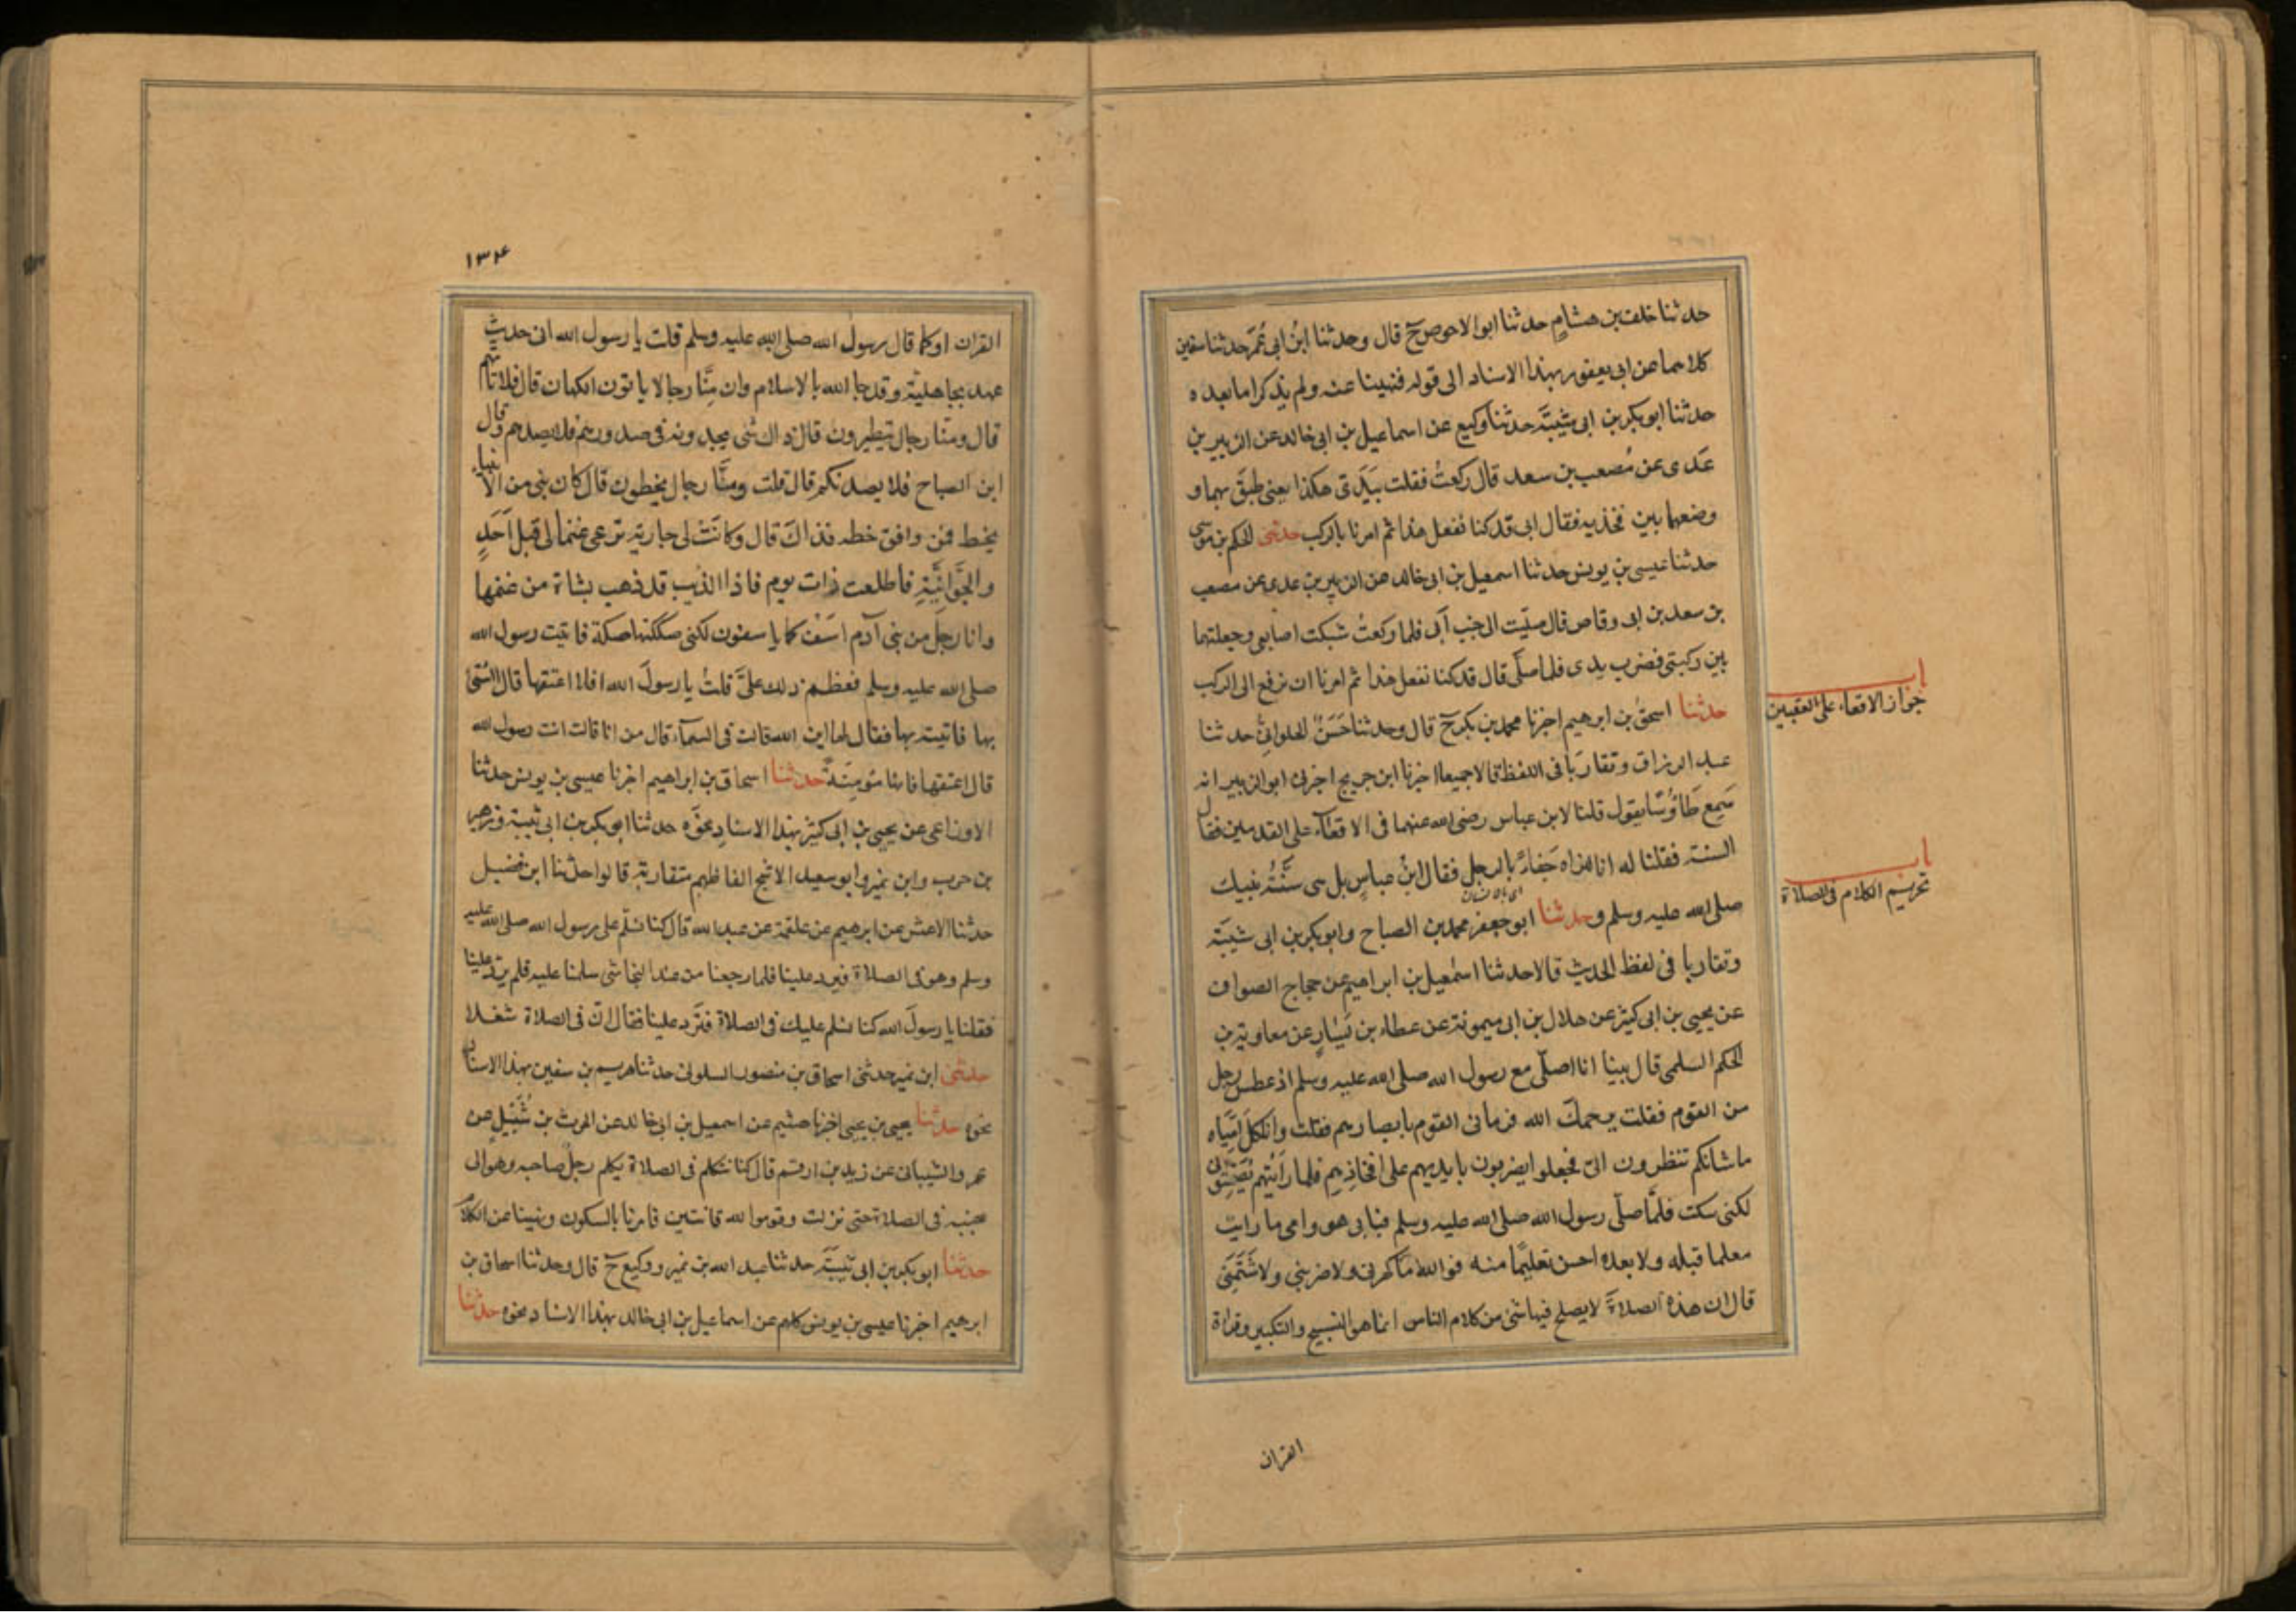 حدثنا خلف بن هشام حدثنا ابو الاحوص ح قال وحدثنا ابن ابى عمر حدثنا سفين
كلاهما عن ابى يعفور بهذا الاسناد الى قوله فنهينا عنه ولم يذكرا ما بعده
حدثنا ابو بكر بن ابى شيبة حدثنا وكيع عن اسماعيل بن ابى خالد عن الزبير بن
عدى عن مصعب بن سعد قال ركعت فقلت بيدى هكذا يعنى طبق بهما و
وضعهما بين فخذيه فقال ابى قد كنا نفعل هذا ثم امرنا بالركب حدثنى الحكم بن موسى
حدثنا عيسى بن يونس حدثنا اسمعيل بن ابى خالد عن الزبير بن عدى عن مصعب
بن سعد بن ابى وقاص قال صليت الى جنب ابى فلما ركعت شبكت اصابعى وجعلتهما
بين ركبتى فضرب يدى فلما صلى قال قد كنا نفعل هذا ثم امرنا ان نرفع الى الركب
باب
جواز الاقعاء على العقبين
حدثنا اسحق بن ابرهيم اخبرنا محمد بن بكر ح قال وحدثنا حَسَنٌ الحلوانى حدثنا
عبد الرزاق وتقاربا فى اللفظ قالا جميعا اخبرنا ابن جريج اخبرنى ابو الزبير انه
سَمِعَ طَاوُسًا يقول قلنا لابن عباس رضى الله عنهما فى الاقعاء على القدمين فقال
السنة فقلنا له انا لنراه جَفاءً بالرجل فقال ابن عباسٍ بل هى سُنَّةُ نبيك
باب
تحريم الكلام فى الصلاة
صلى الله عليه وسلم وحدثنا ابو جعفر محمد بن الصباح وابو بكر بن ابى شيبة
وتقاربا فى لفظ الحديث قالا حدثنا اسمعيل بن ابراهيم عن حجاج الصواف
عن يحيى بن ابى كثير عن هلال بن ابى ميمونة عن عطاء بن يَسَارٍ عن معاوية بن
الحكم السلمى قال بينا انا اصلى مع رسول الله صلى الله عليه وسلم اذ عطس رجل
من القوم فقلت يرحمك الله فرمانى القوم بابصارهم فقلت واثكل اُمِّيَاه
ما شانكم تنظرون الىّ فجعلوا يضربون بايديهم على افخاذهم فلما رايتهم يُصَمِّتُونَنى
لكنى سكت فلمّا صلّى رسول الله صلى الله عليه وسلم فبابى هو وامى ما رايت
معلما قبله ولا بعده احسن تعليمًا منه فوالله ما كهرنى ولا ضربنى ولا شَتَمَنِى
قال ان هذه الصلاةَ لا يصلح فيها شئ من كلام الناس انما هو التسبيح والتكبير وقراة
القران
١٣٤
القران او كما قال رسول الله صلى الله عليه وسلم قلت يا رسول الله انى حديث
عهد بجاهلية وقد جا الله بالاسلام وان مِنَّا رجالا ياتون الكهان قال فلا تاتهم
قال ومنا رجال يتطيرون قال ذاك شئ يجدونه فى صدورهم فلا يصدهم وقال
ابن الصباح فلا يصدنكم قال قلت ومنَّا رجال يخطون قال كان نبى من الانبياء
يخط فمن وافق خطه فذاكَ قال وكانَتْ لى جارية ترعى غنما لى قبل اُحَدٍ
والجَوَّانِيَّةِ فاطلعت ذات يوم فاذا الذيب قد ذهب بشاة من غنمها
وانا رجل من بنى آدم اسف كما ياسفون لكنى صككتها صكة فاتيت رسول الله
صلى الله عليه وسلم فعظم ذلك علىَّ قلت يا رسول الله افلا اعتقها قال ائتنى
بها فاتيته بها فقال لها اين الله قالت فى السماء قال من انا قالت انت رسول الله
قال اعتقها فانها مؤمِنَةٌ حدثنا اسحاق بن ابراهيم اخبرنا عيسى بن يونس حدثنا
الاوزاعى عن يحيى بن ابى كثير بهذا الاسناد نحوَه حدثنا ابو بكر بن ابى شيبة وزهير
بن حرب وابن نمير وابو سعيد الاشج الفاظهم متقاربة قالوا حدثنا ابن فضيل
حدثنا الاعمش عن ابرهيم عن علقمة عن عبد الله قال كنا نسلّم على رسول الله صلى الله عليه
وسلم وهو فى الصلاة فيرد علينا فلما رجعنا من عند النجاشى سلمنا عليه فلم يرد علينا
فقلنا يا رسول الله كنا نسلم عليك فى الصلاة فترد علينا فقال انّ فى الصلاة شغلا
حدثنى ابن نمير حدثنى اسحاق بن منصور السلولى حدثنا هريم بن سفين بهذا الاسناد
نحوه حدثنا يحيى بن يحيى اخبرنا هشيم عن اسمعيل بن ابى خالد عن الحرث بن شُبَيْلٍ عن
عمرو الشيبانى عن زيد بن ارقم قال كنا نتكلم فى الصلاة يكلم رجل صاحبه وهو الى
جنبه فى الصلاة حتى نزلت وقوموا لله قانتين فامرنا بالسكوت ونهينا عن الكلام
حدثنا ابو بكر بن ابى شيبة حدثنا عبد الله بن نمير ووكيع ح قال وحدثنا اسحاق بن
ابرهيم اخبرنا عيسى بن يونس كلهم عن اسماعيل بن ابى خالد بهذا الاسناد نحوه حدثنا